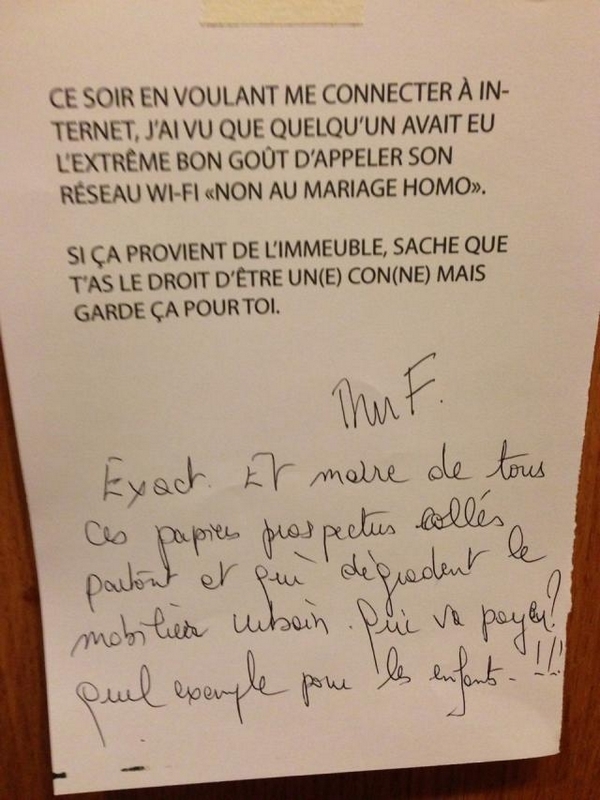 CE SOIR EN VOULANT ME CONNECTER À IN-
TERNET, J'AI VU QUE QUELQU'UN AVAIT EU
L'EXTRÊME BON GOÛT D'APPELER SON
RÉSEAU WI-FI «NON AU MARIAGE HOMO».
SI ÇA PROVIENT DE L'IMMEUBLE, SACHE QUE
T'AS LE DROIT D'ÊTRE UN(E) CON(NE) MAIS
GARDE ÇA POUR TOI.
F.
Exact. Et marre de tous
ces papiers prospectus collés
partout et qui dégradent le
mobilier urbain. Qui va payer?
Quel exemple pour les enfants - !!!